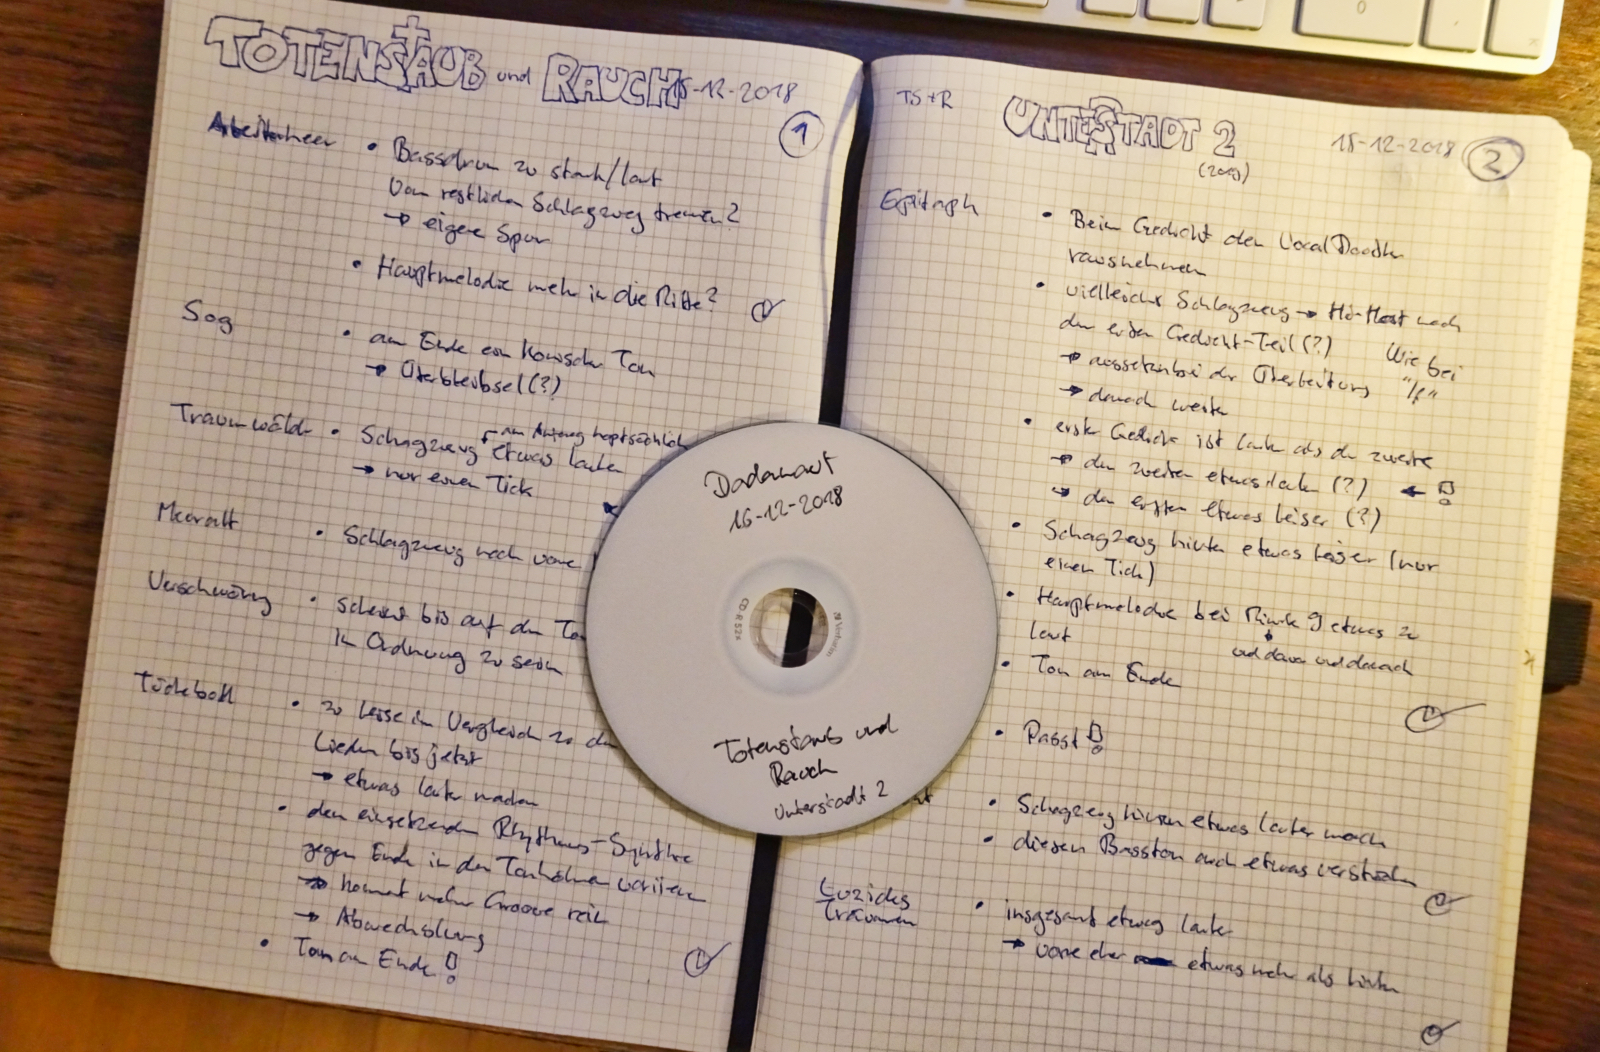 TOTENSTAUB und RAUCH 15-12-2018
1
Arbeiterheer
• Bassdrum zu stark/laut
vom restlichen Schlagzeug trennen?
→ eigene Spur
• Hauptmelodie mehr in die Mitte?
Sog
• am Ende ein komischer Ton
→ Überbleibsel (?)
Traumwälder
• Schagzeug etwas lauter
am Anfang hauptsächlich
→ nur einen Tick
• Schlagzeug nach vorne
Verschwörung
• scheint bis auf den
in Ordnung zu sein
• zu leise im Vergleich zu den
Liedern bis jetzt
→ etwas lauter machen
• den einsetzenden Rhythmus-Synthie
gegen Ende in den Tonhöhen variieren
→ kommt mehr Groove rein
→ Abwechslung
• Ton am Ende!
TS+R
UNTERSTADT 2
(2013)
15-12-2018
2
Epitaph
• Beim Gedicht den Vocal Doodler
rausnehmen
• vielleicht Schlagzeug → Hi-Hat nach
dem ersten Gedicht-Teil (?)
Wie bei
→ aussetzen bei der Überleitung
→ danach weiter
• erste Gedicht ist lauter als der zweite
→ den zweiten etwas lauter (?) ← !
→ den ersten etwas leiser (?)
• Schagzeug hinten etwas leiser (nur
einen Tick)
• Hauptmelodie bei Minute 9 etwas zu
laut
und davor und danach
• Ton am Ende
• Passt!
• Schagzeug hinten etwas lauter machen
• diesen Basston auch etwas verstärken
Luzides
Träumen
• insgesamt etwas lauter
→ vorne eher etwas mehr als hinten
Dadanaut
16-12-2018
CD-R 52x
Verbatim
Totenstaub und
Rauch
Unterstadt 2